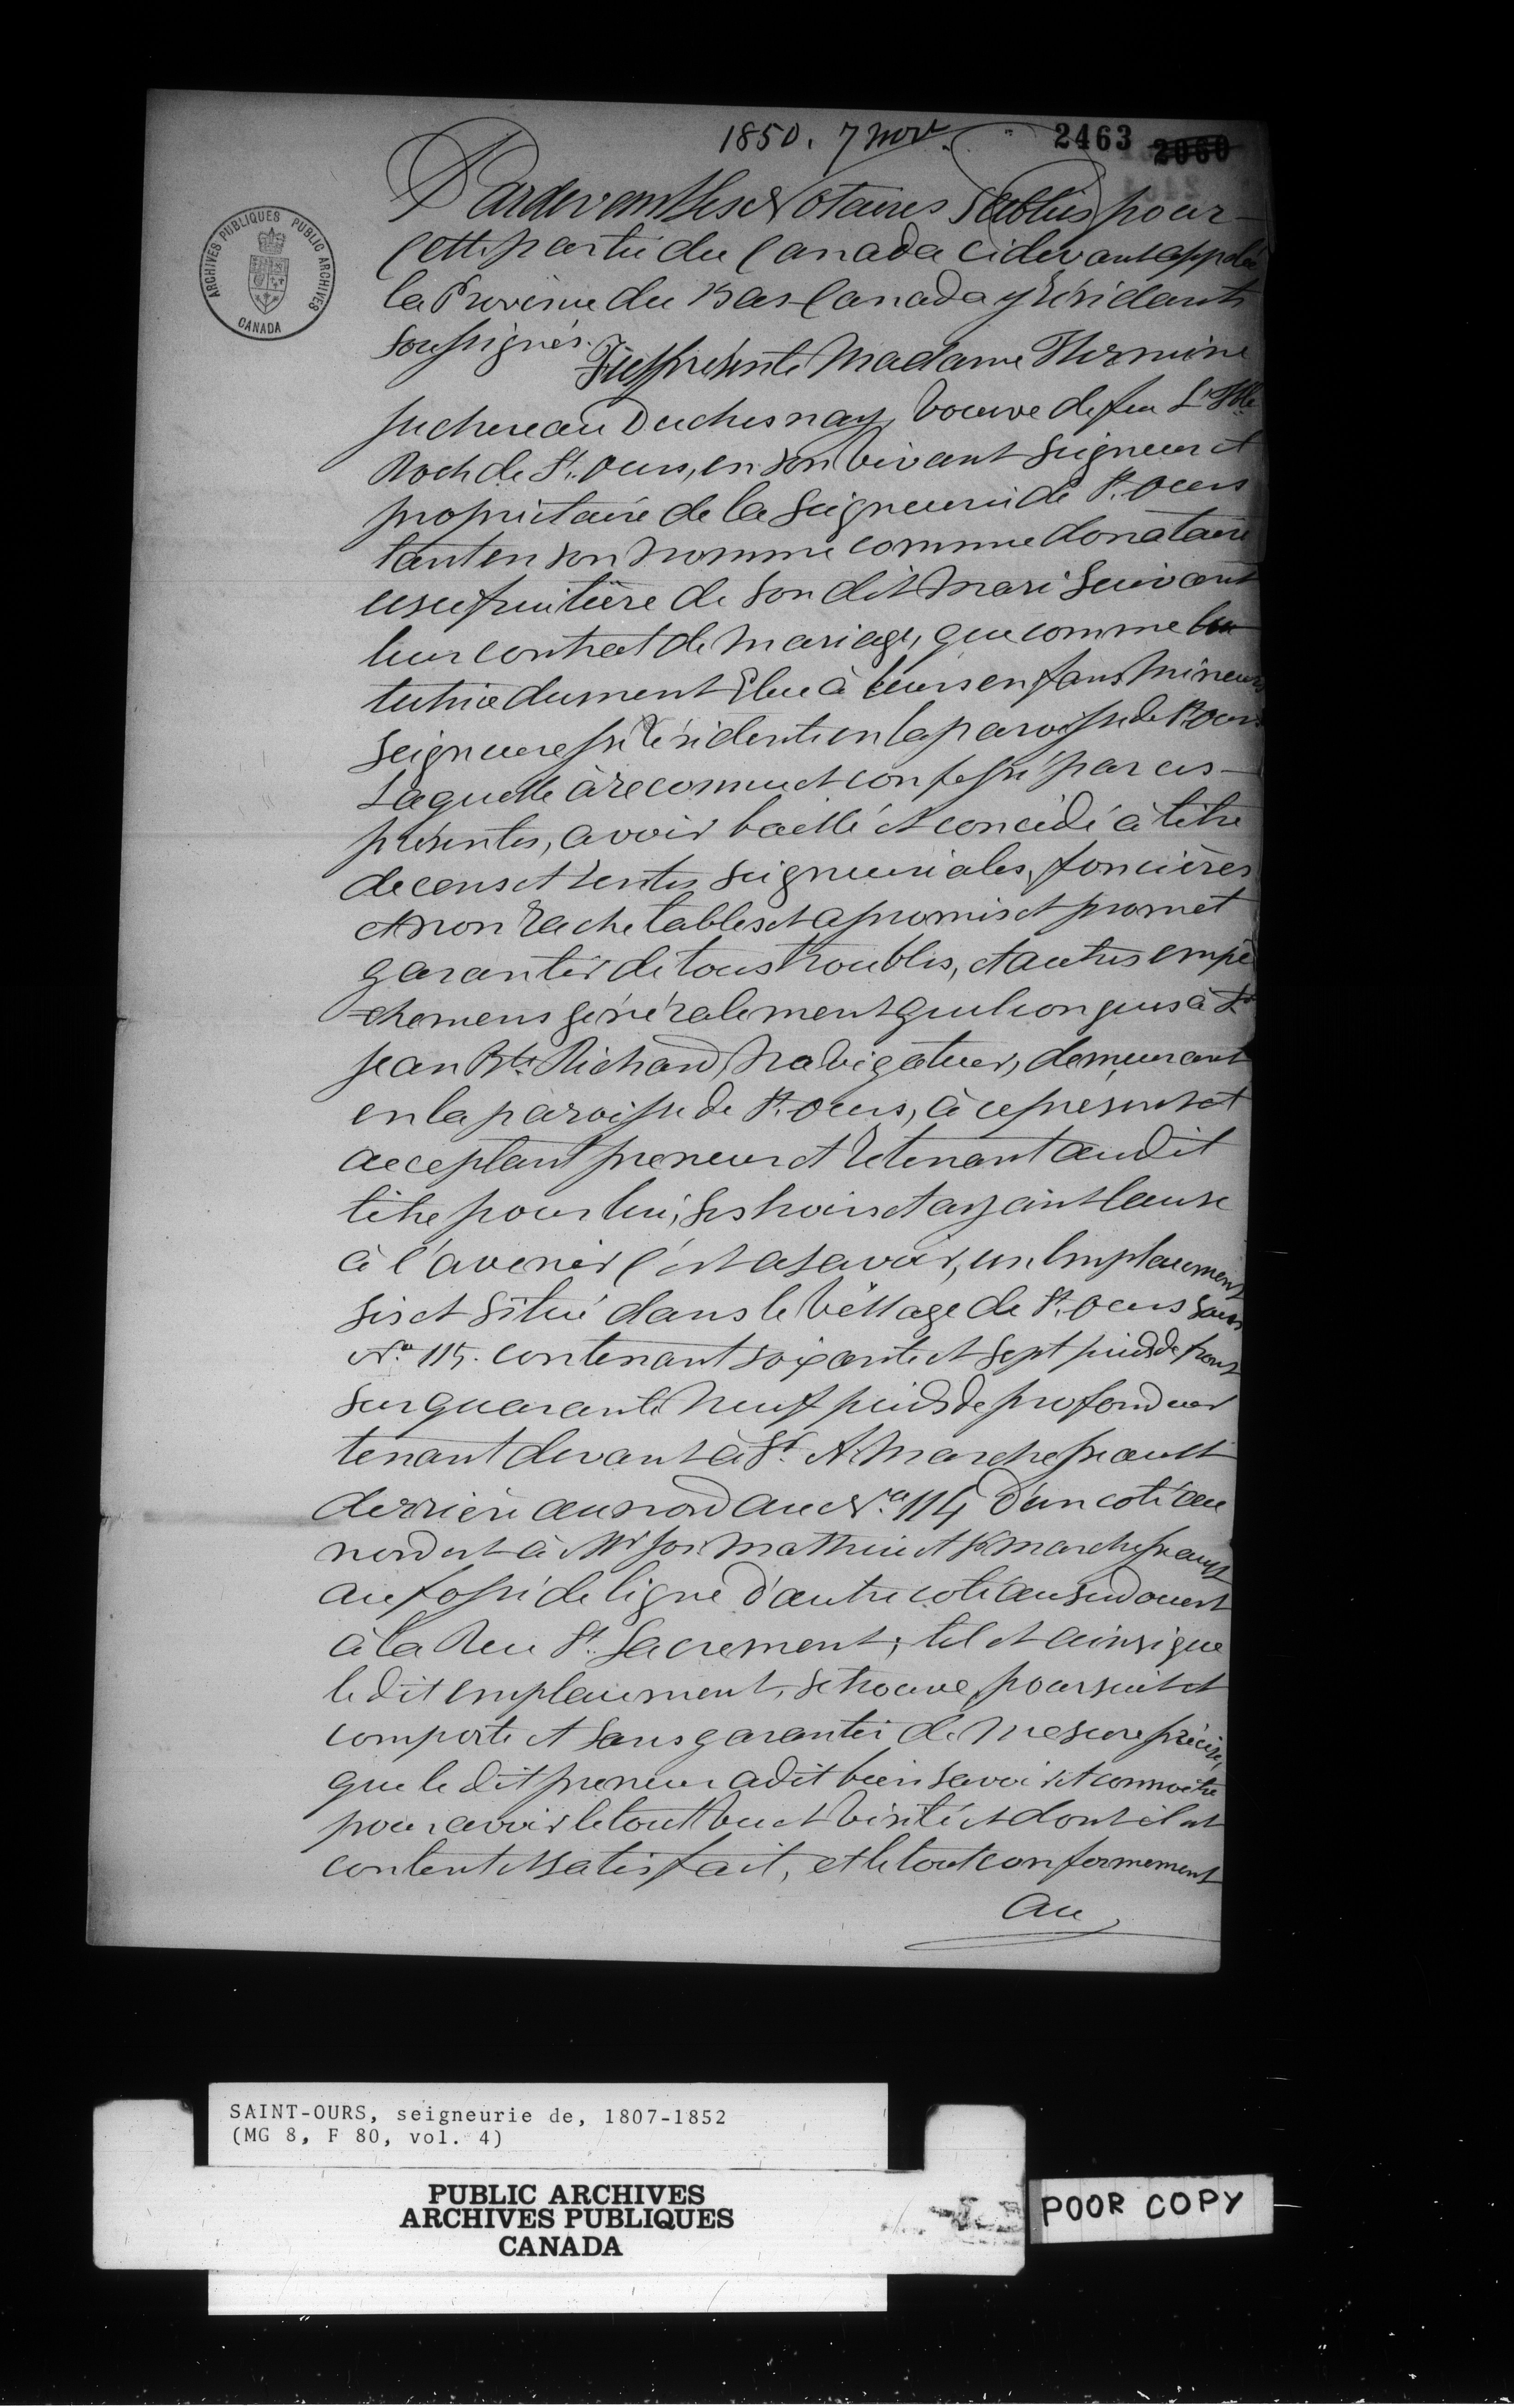 1850. 7 Nov.
2463 2060
ARCHIVES PUBLIQUES PUBLIC ARCHIVES
CANADA
Pardevant les Notaires Publics pour
cette partie du Canada ci devant appelée
la Province du Bas-Canada y résidants
soussignés.
Fut présente Madame Hermine
Juchereau Duchesnay, Veuve de feu
Roch de St. Ours, en son vivant Seigneur et
propriétaire de la Seigneurie de St. Ours
tant en son nomme comme donataire
usufruitière de son dit Mari Suivant
leur contrat de Mariage, que comme
tutrice dument Elue à leurs enfans Mineurs
Seigneuresse Résidente en la paroisse de St. Ours
Laquelle à reconnu et confessé par ces
présentes, avoir baillé et concédé à titre
de cens et rentes Seigneuriales, foncières
et non rachetables et a promis et promet
garantir de tous troubles, et autres empê
-chemens généralement quelconques à Sr.
Jean Bte. Richard, Navigateur, demeurant
en la paroisse de St. Ours, à ce présent et
acceptant preneur et Retenant audit
titre pour lui, ses hoirs et ayant cause
à l'avenir c'est asavoir, un Emplacement
sis et situé dans le Village de St. Ours sous
No. 115. contenant soixante et sept pieds de front
sur quarante Neuf pieds de profondeur
tenant devant à Sr. A. Marchesseault
derrière au nord au No. 114 d'un coté au
nord est à Mr Jos. Mathieu et Marchesseault
au fossé de ligne d'autre coté au sud ouest
à la Rue St. Sacrement, tel et ainsi que
le dit emplacement, se trouve, poursuit et
comporte et sans garantie de Mesure précise,
que le dit preneur a dit bien savoir et connoitre
pour avoir le tout Vu et Visité et dont il est
content et satisfait, et le tout conformement
au
SAINT-OURS, seigneurie de, 1807-1852
(MG 8, F 80, vol. 4)
PUBLIC ARCHIVES
ARCHIVES PUBLIQUES
CANADA
POOR COPY